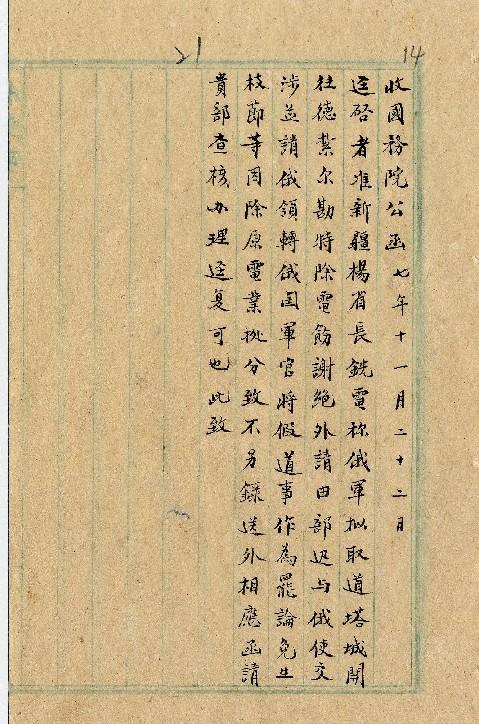 14
21
收國務院公函七年十一月二十二日
逕啓者准新疆楊省長銑電称俄軍拟取道塔城開
往德紮尔勘特除電飭謝絕外請由部迅与俄使交
涉並請俄領轉俄国軍官將假道事作為罷論免生
枝節等因除原電業分致不另錄送外相應函請
貴部查核办理逕复可也此致